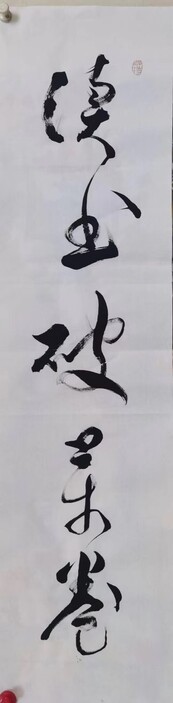 读书破万卷